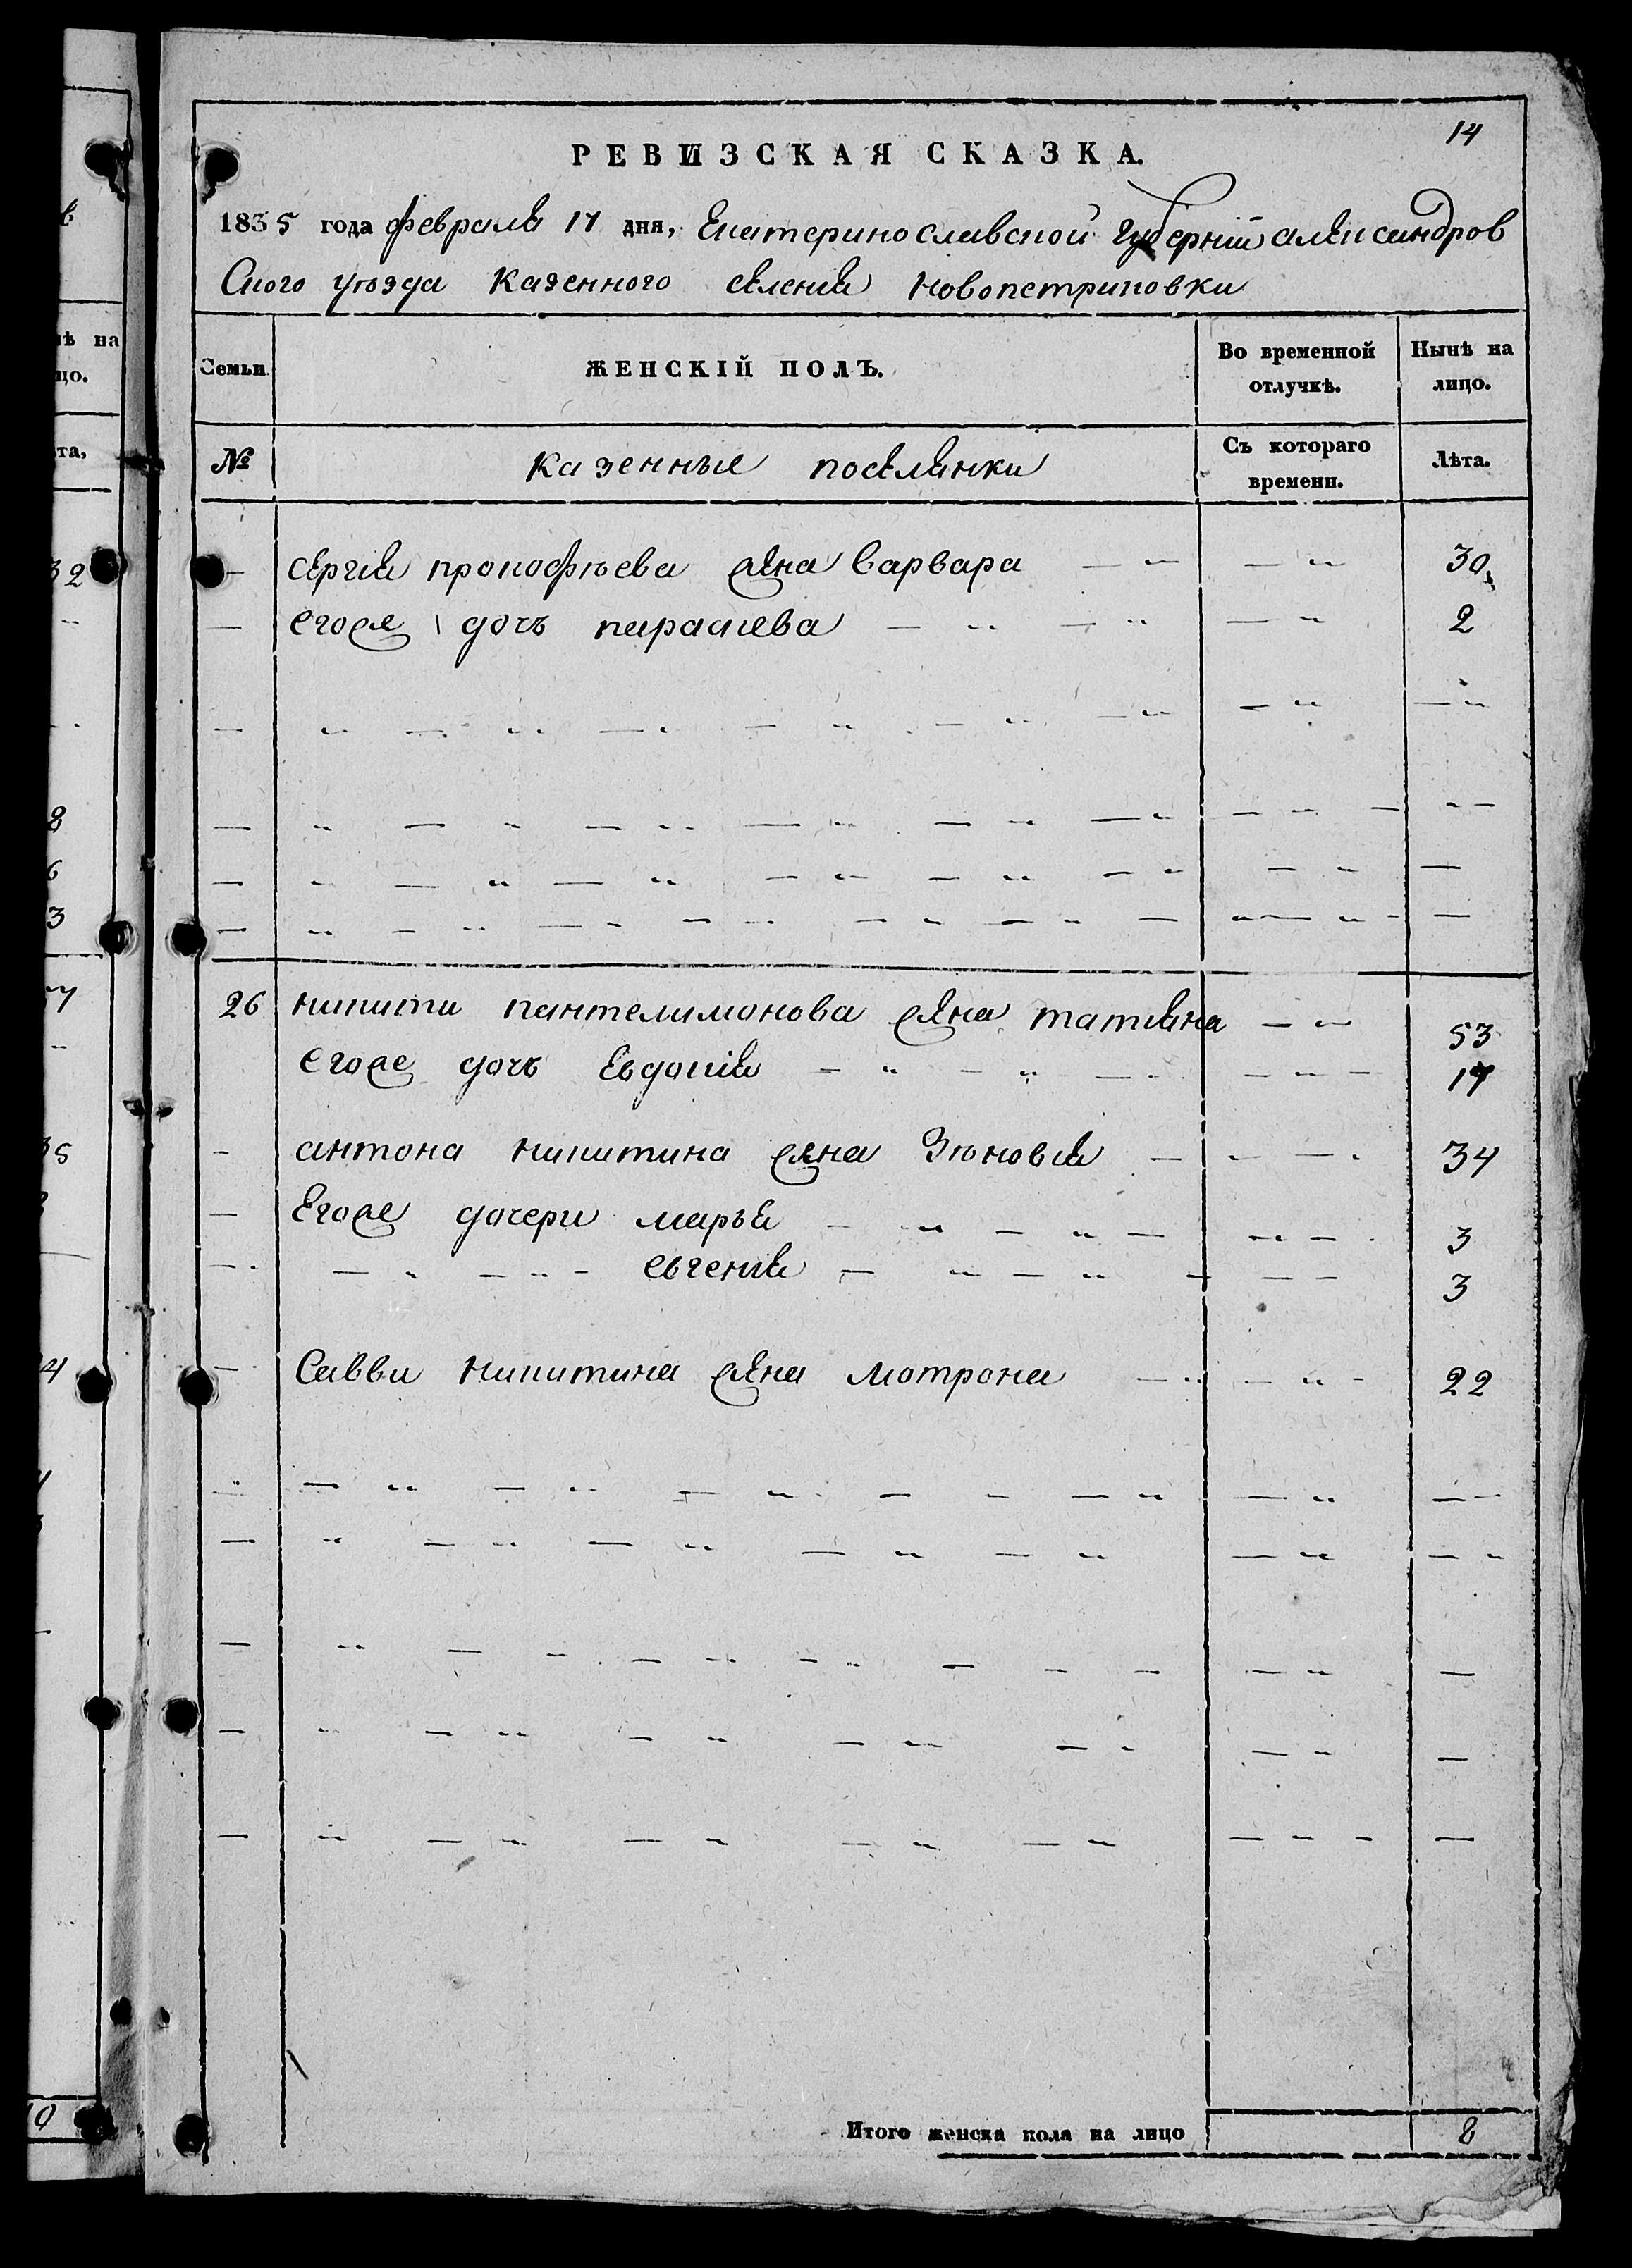 14
РЕВИЗСКАЯ СКАЗКА.
1835 года февраля 17 дня, Екатеринославской губерніи александров
Ского уѣзда казенного селения Новопетриковки
Семьи. ЖЕНСКІЙ ПОЛЪ. Во временной отлучкѣ. Нынѣ на лицо.
№ казенные поселянки Съ котораго времени. Лѣта.
сергия прокофьева жена варвара 30
егоже дочь парасκева 2
26 никити пантелимонова жена татияна 53
егоже дочь Евдокия 17
антона никитина жена Зѣновия 34
Егоже дочери марья 3
евгения 3
Савви никитина жена мотрона 22
Итого женска пола на лицо 8